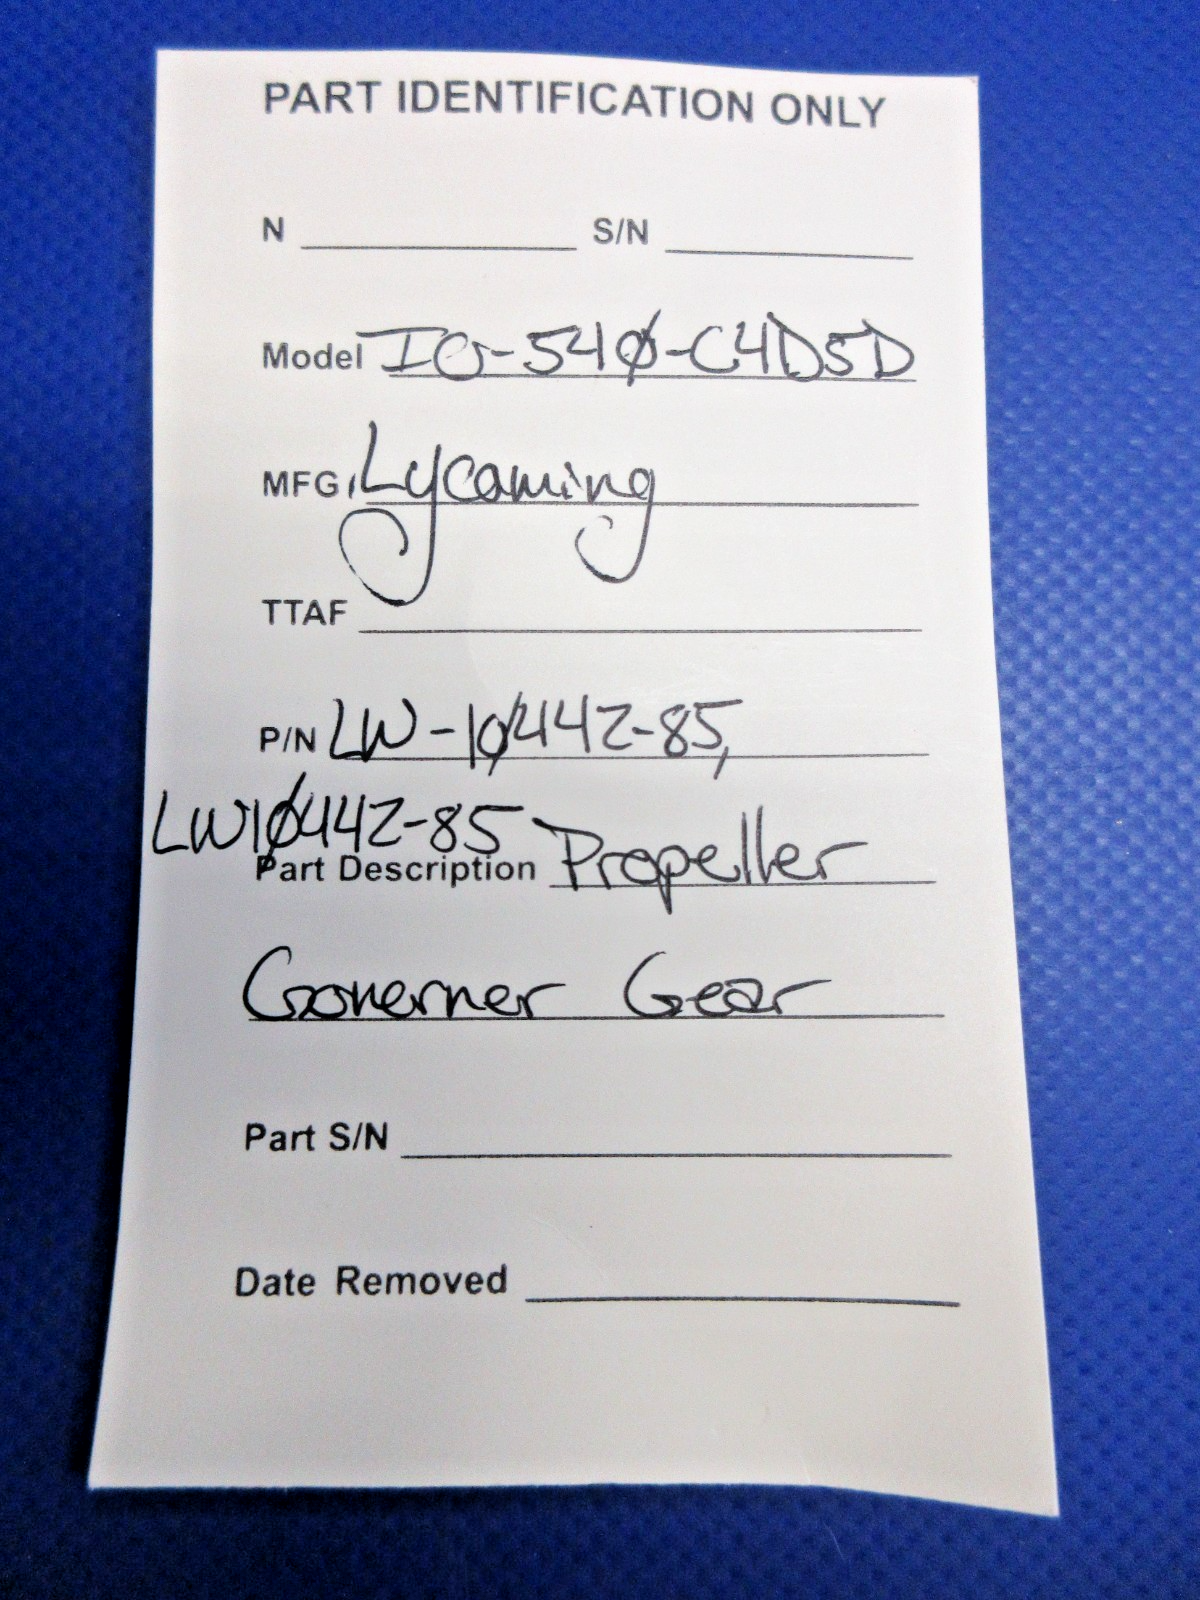 PART IDENTIFICATION ONLY
N ____________ S/N ____________
Model IO-540-C4D5D
MFG Lycoming
TTAF ____________
P/N LW-10442-85,
LW10442-85
Part Description Propeller
Governer Gear
Part S/N ____________
Date Removed ____________